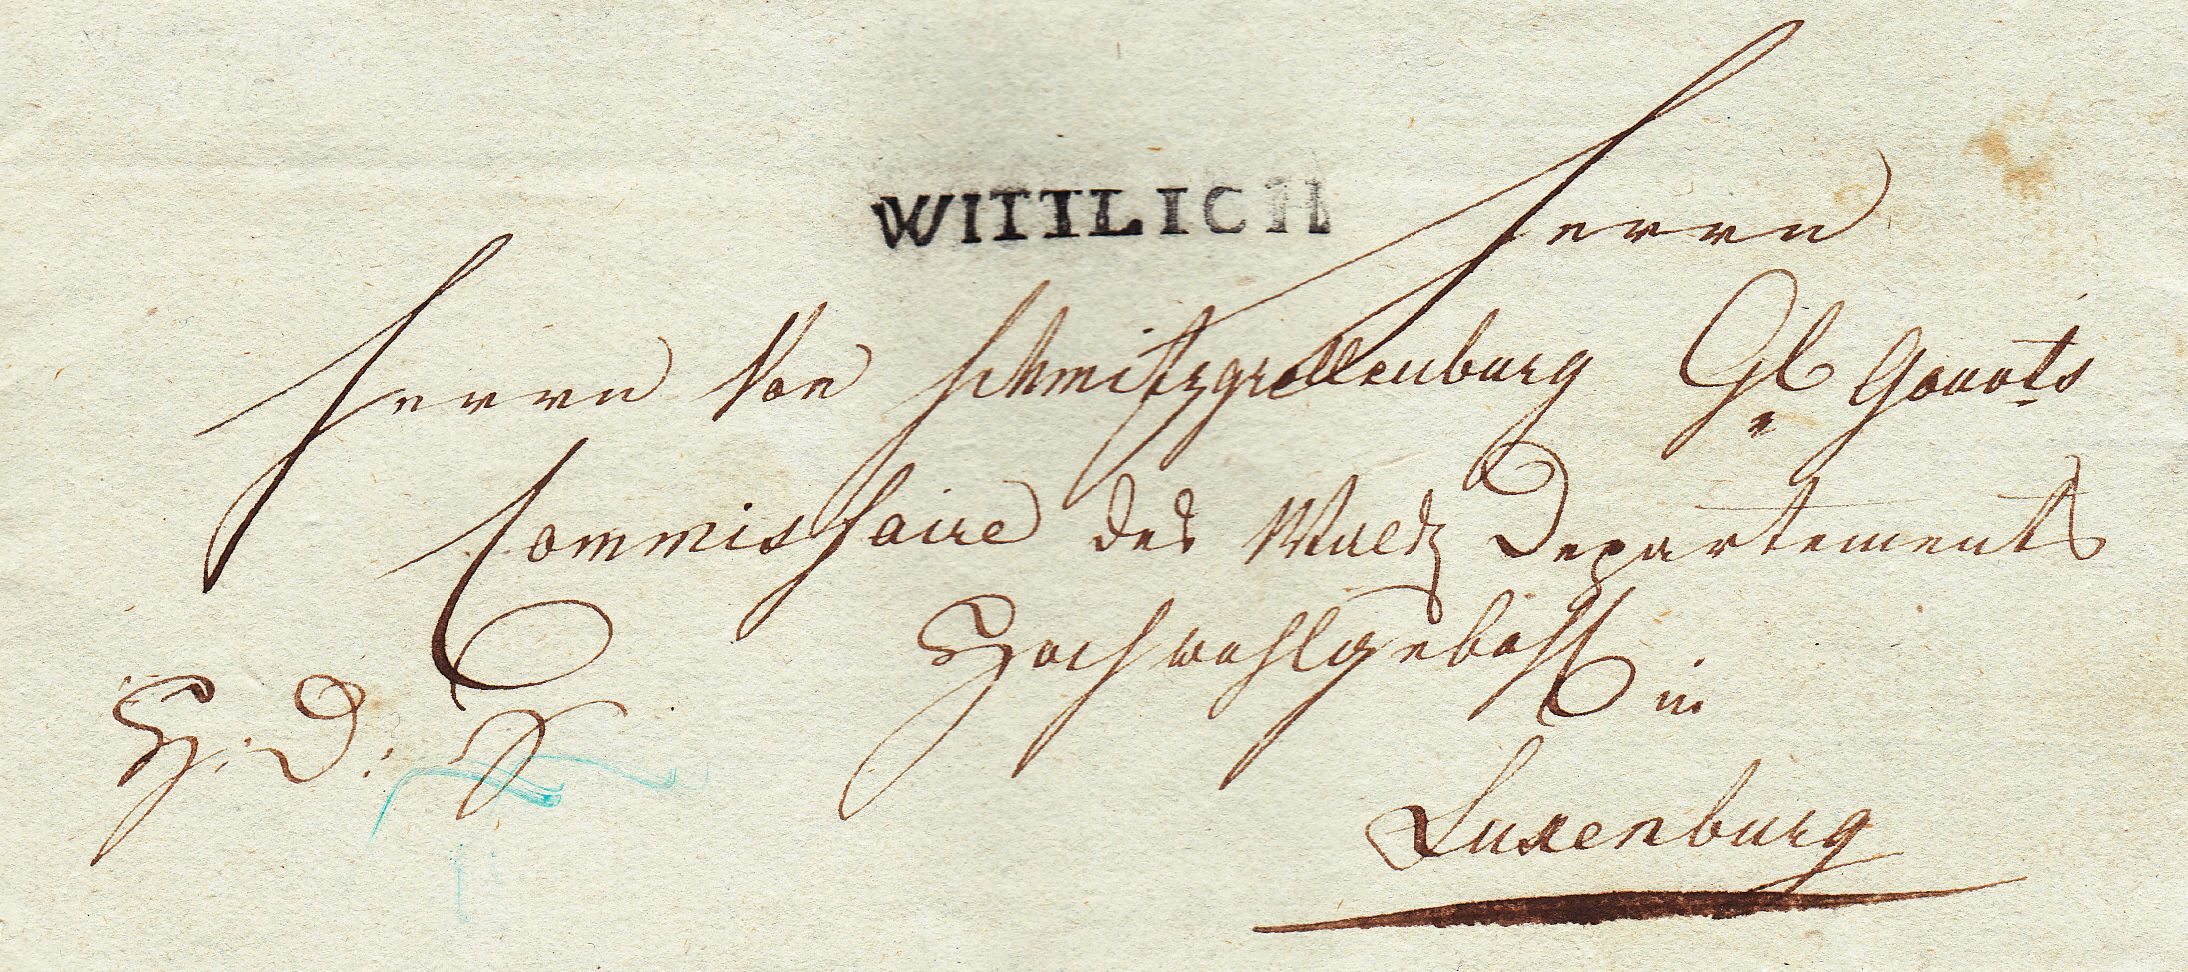 WITTLICH
Herrn
Herrn Von Schmitzgrollenburg Gl Gouvts
Commissaire des Departements
Hochwohlgeb in
H: D: S
Luxenburg